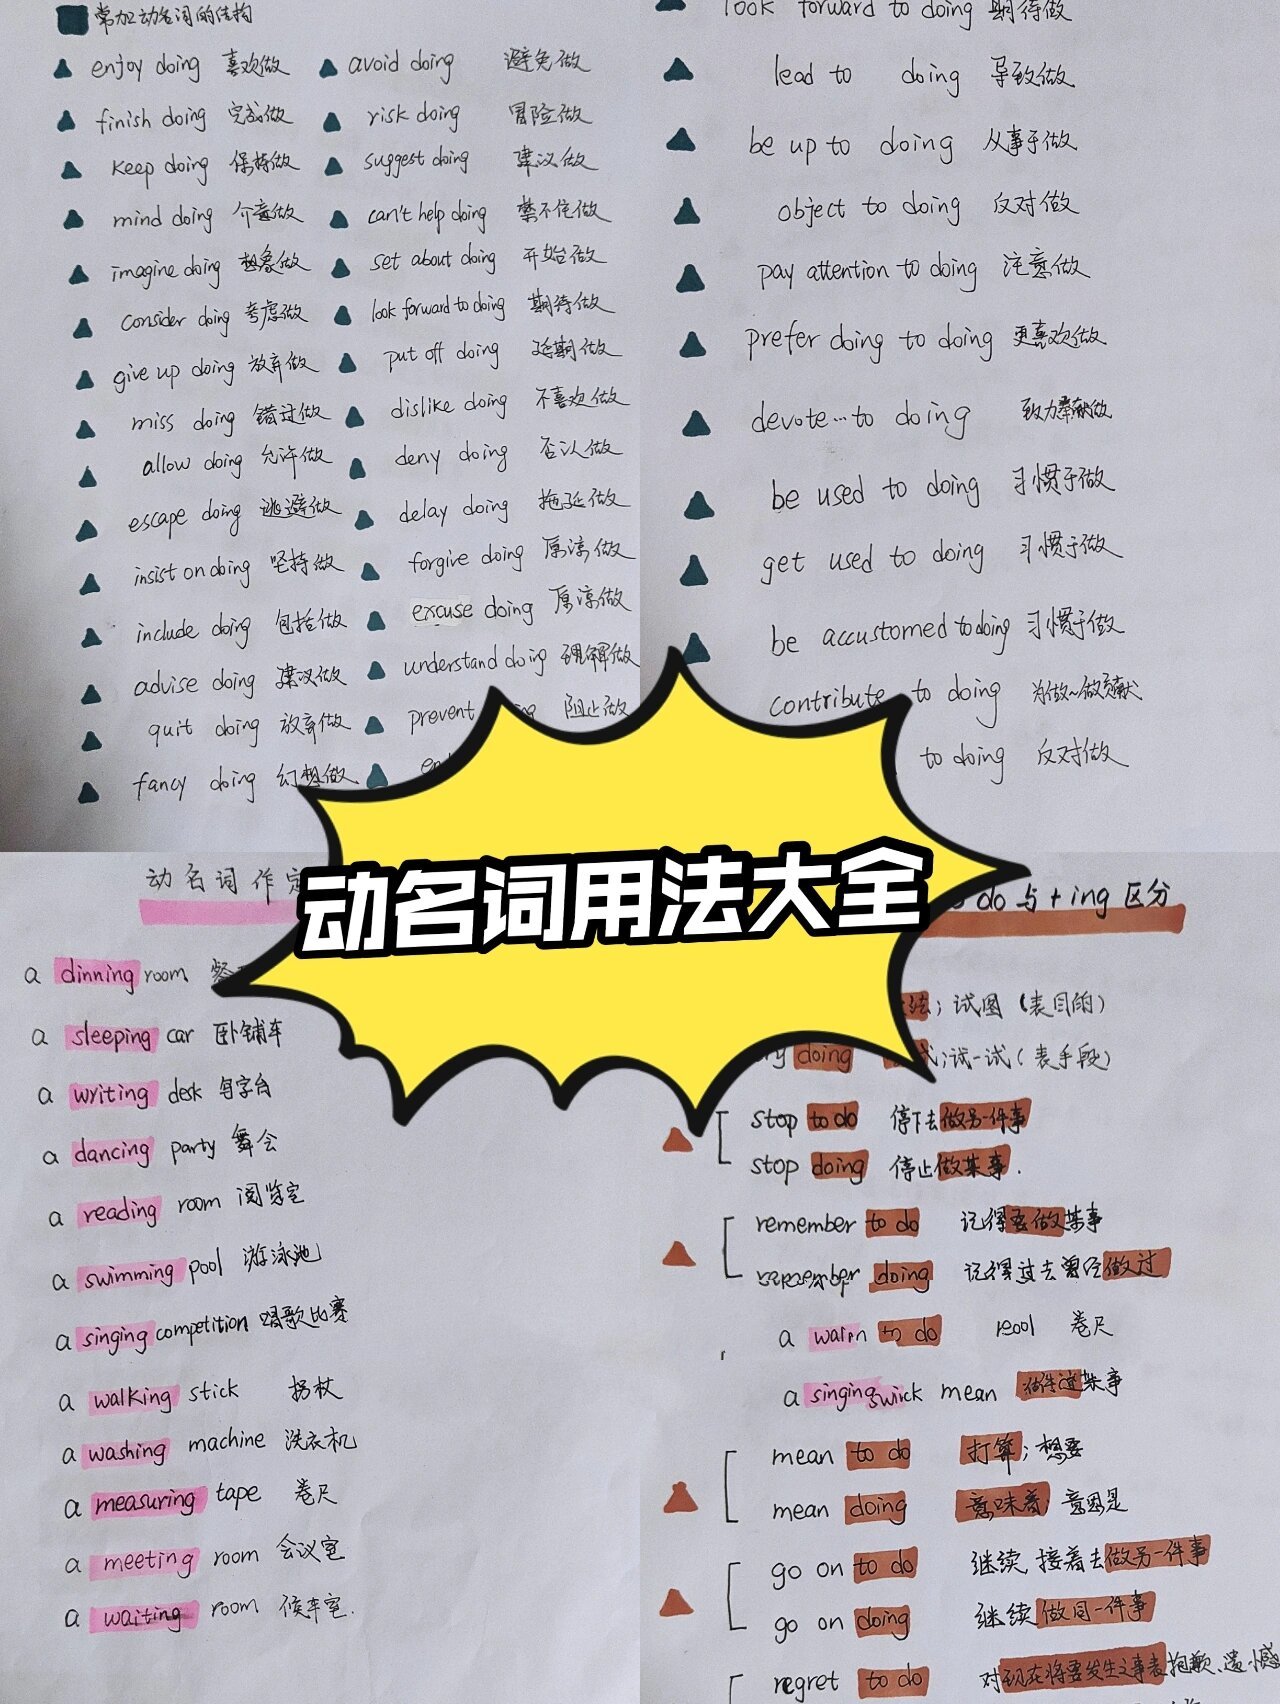 常加动名词的结构
enjoy doing 喜欢做
finish doing 完成做
keep doing 保持做
mind doing 介意做
imagine doing 想象做
consider doing 考虑做
give up doing 放弃做
miss doing 错过做
allow doing 允许做
escape doing 逃避做
insist on doing 坚持做
include doing 包括做
advise doing 建议做
quit doing 放弃做
fancy doing 幻想做
avoid doing 避免做
risk doing 冒险做
suggest doing 建议做
can't help doing 禁不住做
set about doing 开始做
look forward to doing 期待做
put off doing 延期做
dislike doing 不喜欢做
deny doing 否认做
delay doing 拖延做
forgive doing 原谅做
excuse doing 原谅做
understand doing 理解做
prevent 阻止做
look forward to doing 期待做
lead to doing 导致做
be up to doing 从事于做
object to doing 反对做
pay attention to doing 注意做
prefer doing to doing 更喜欢做
devote…to doing 致力奉献做
be used to doing 习惯于做
get used to doing 习惯于做
be accustomed to doing 习惯于做
contribute to doing 为做~做贡献
to doing 反对做
动名词用法大全
动名词作定
a dinning room
a sleeping car 卧铺车
a writing desk 写字台
a dancing party 舞会
a reading room 阅览室
a swimming pool 游泳池
a singing competition 唱歌比赛
a walking stick 拐杖
a washing machine 洗衣机
a measuring tape 卷尺
a meeting room 会议室
a waiting room 候车室.
do 与 + ing 区分
；试图（表目的）
doing ；试一试（表手段）
stop to do 停下去做另一件事
stop doing 停止做某事.
remember to do 记得要做某事
remember doing 记得过去曾经做过
a to do 卷尺
a singing mean 某事
mean to do 打算；想要
mean doing 意味着；意思是
go on to do 继续,接着去做另一件事
go on doing 继续做同一件事
regret to do 对现在将要发生之事表抱歉、遗憾